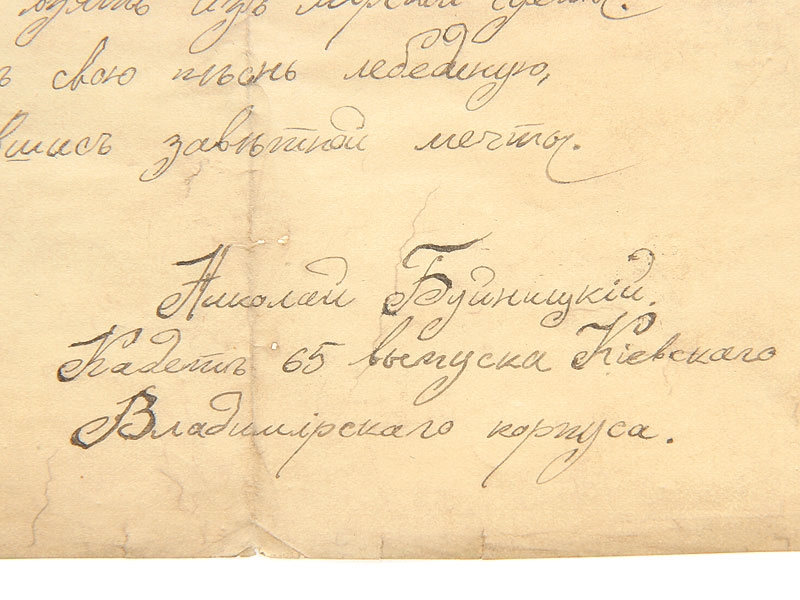 изъ мірской
свою пѣснь лебединую,
завѣтной мечты.
Николай Буйницкій.
Кадетъ 65 выпуска Кіевскаго
Владимірскаго корпуса.